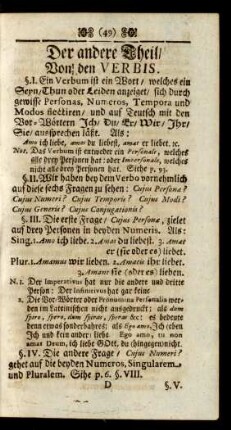 (49)
Der andere Theil/
Von den VERBIS.
§. I. Ein Verbum ist ein Wort/ welches ein
Seyn/ Thun oder Leiden anzeiget/ sich durch
gewisse Personas, Numeros, Tempora und
Modos flectiren/ und auf Deutsch mit den
Vor-Wörtern Ich/ Du/ Er/ Wir/ Ihr/
Sie/ aussprechen läßt. Als:
Amo ich liebe, amas du liebest, amat er liebet. ıc.
Not. Das Verbum ist entweder ein Personale, welches
alle drey Personen hat: oder Impersonale, welches
nicht alle drey Personen hat. Siehe p. 95.
§. II. Wir haben bey dem Verbo vornehmlich
auf diese sechs Fragen zu sehen: Cujus Personæ?
Cujus Numeri? Cujus Temporis? Cujus Modi?
Cujus Generis? Cujus Conjugationis?
§. III. Die erste Frage/ Cujus Personæ, zielet
auf drey Personen in beyden Numeris. Als:
Sing. 1. Amo ich liebe. 2. Amas du liebest. 3. Amat
er (sie oder es) liebet.
Plur. 1. Amamus wir lieben. 2. Amatis ihr liebet.
3. Amant sie (oder es) lieben.
N. 1. Der Imperativus hat nur die andere und dritte
Person: Der Infinitivus hat gar keine
2. Die Vor-Wörter oder Pronomina Personalia wer-
den im Lateinischen nicht ausgedruckt: als dum
spiro, spero, dum spiras, speras &c: es bedeute
denn etwas sonderbahres; als Ego amo, Ich (eben
Ich und kein ander) liebe. Ego amo, tu non
amas Deum, ich liebe GOtt, du (hingegen) nicht.
§. IV. Die andere Frage/ Cujus Numeri?
gehet auf die beyden Numeros, Singularem
und Pluralem. Sihe p. 6. §. VIII.
D §. V.